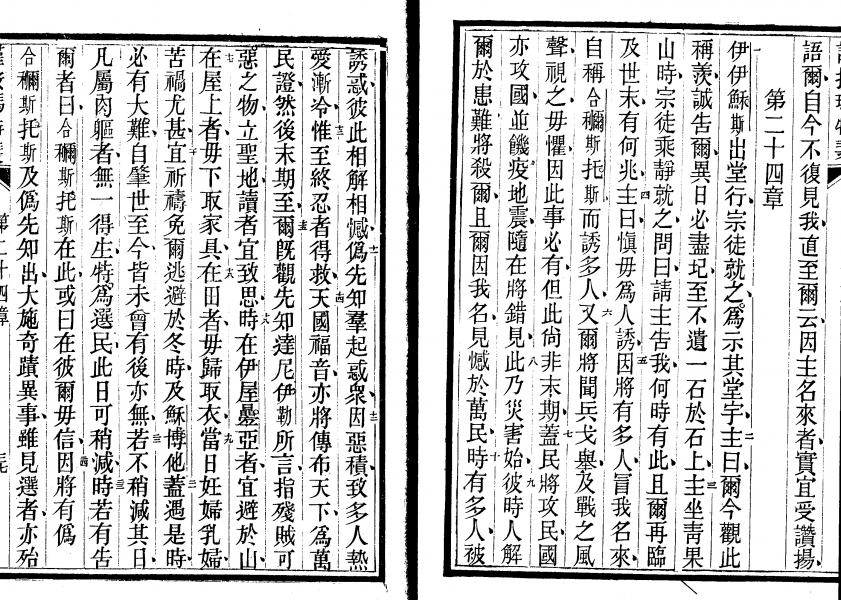 語爾自今不復見我直至爾云因主名來者實宜受讚揚
第二十四章
伊伊穌斯出堂行宗徒就之爲示其堂宇主曰爾今觀此
稱羨誠告爾異日必盡圮至不遺一石於石上主坐靑果
山時宗徒乘靜就之問曰請主告我何時有此且爾再臨
及世末有何兆主曰愼毋爲人誘因將有多人冐我名來
自稱合𥡴斯托斯而誘多人又爾將聞兵戈舉及戰之風
聲視之毋懼因此事必有但此尙非末期蓋民將攻民國
亦攻國並饑疫地震隨在將錯見此乃災害始彼時人解
爾於患難將殺爾且爾因我名見憾於萬民時有多人被
誘惑彼此相解相憾僞先知羣起惑衆因惡積致多人熱
愛漸冷惟至終忍者得救天國福音亦將傳布天下爲萬
民證然後末期至爾旣觀先知達尼伊勒所言指殘賊可
惡之物立聖地讀者宜致思時在伊屋疊亞者宜避於山
在屋上者毋下取家具在田者毋歸取衣當日妊婦乳婦
苦禍尤甚宜祈禱免爾逃避於冬時及穌博他蓋遇是時
必有大難自肇世至今皆未曾有後亦無若不稍減其日
凡屬肉軀者無一得生特爲選民此日可稍減時若有告
爾者曰合𥡴斯托斯在此或曰在彼爾毋信因將有僞
合𥡴斯托斯及僞先知出大施奇蹟異事雖見選者亦殆
第二十四章